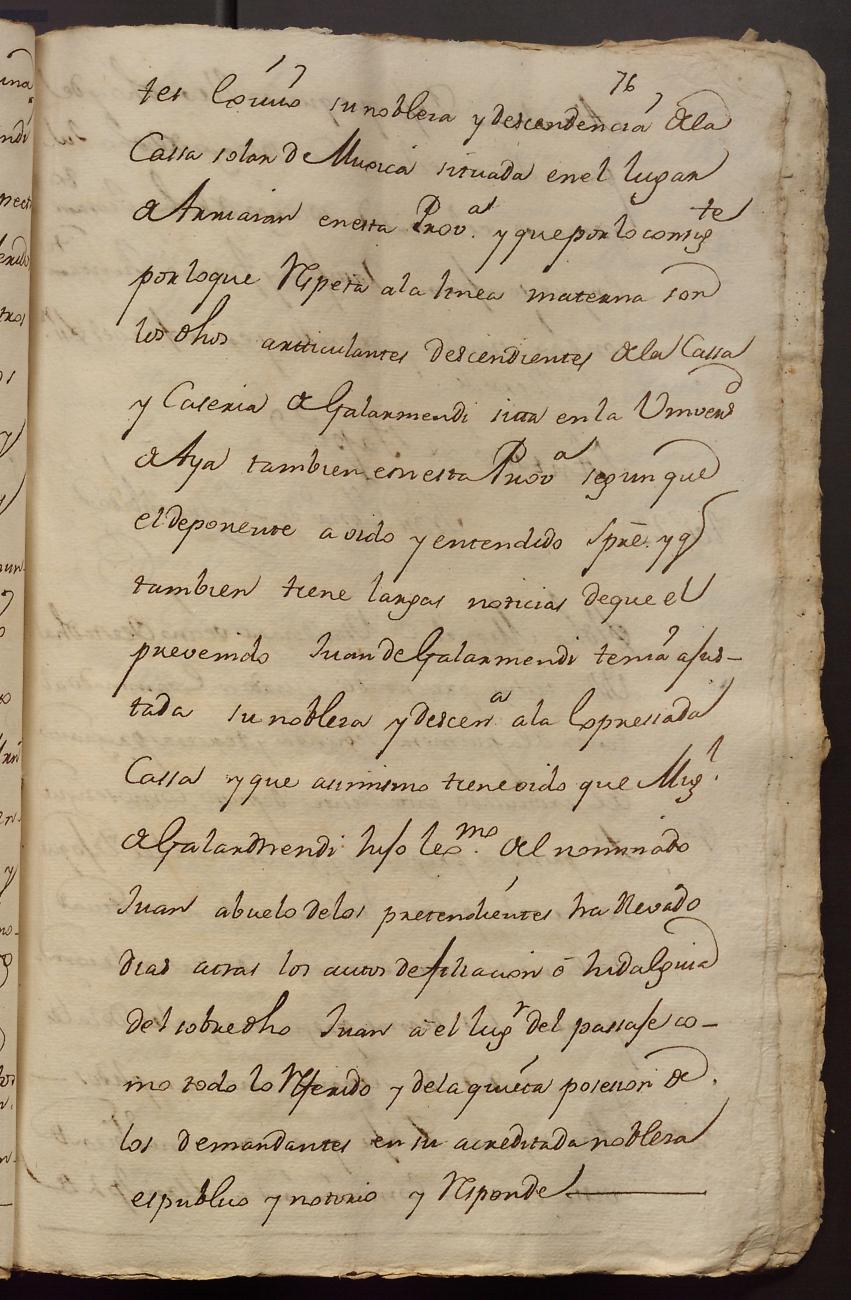 76
tes su nobleza y descendencia de la
Cassa solar de Muxica situada en el lugar
de Armaian en esta Prov.ª y que por lo consigte
por lo que Respeta a la linea materna son
los dhos articulantes descendientes de la Cassa
y Caseria de Galarmendi sita en la Univerd
de Aya tambien en esta Provª segun que
el deponente a oido y entendido spre. y q
tambien tiene largas noticias de que el
prevenido Juan de Galarmendi tenia ajus-
tada su nobleza y descenª a la Expressada
Cassa y que asimismo tiene oido que Migl.
de Galardmendi hijo lexmo. del nominado
Juan abuelo de los pretendientes ha llevado
dias atras los autos de filiacion ó hidalguia
del sobredho Juan á el lugr del passaje co-
mo todo lo Referido y de la quieta posesion de
los demandantes en su acreditada nobleza
es publico y notorio y Responde